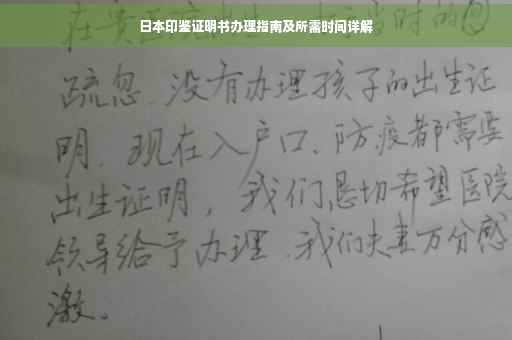 日本印鉴证明书办理指南及所需时间详解
疏忽、没有办理孩子的出生证
明、现在入户口、防疫都需要
出生证明，我们恳切希望医院
领导给予办理、我们夫妻万分感
激。